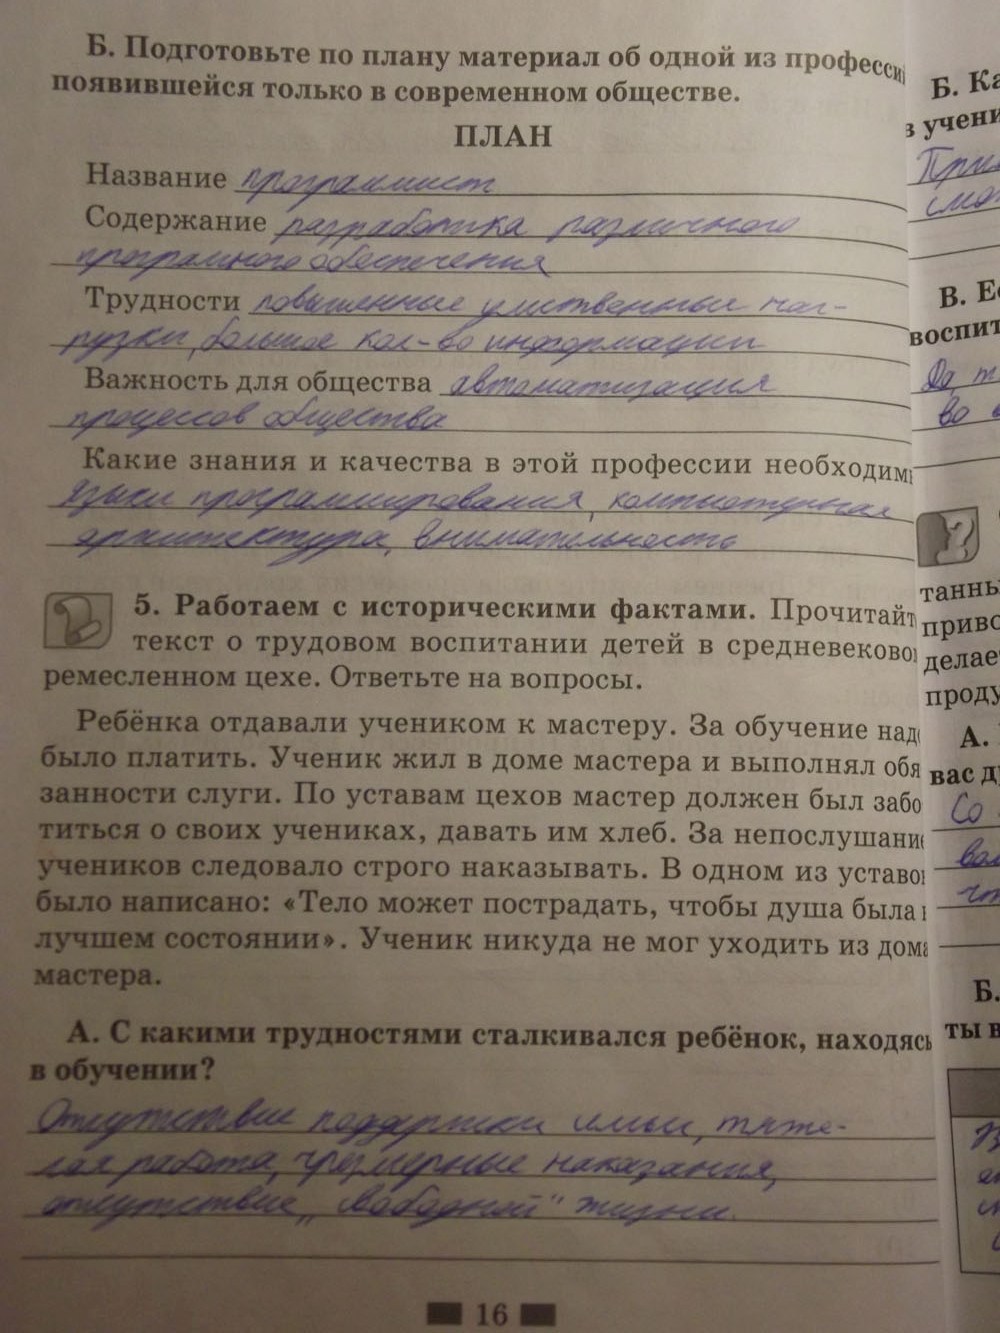 Б. Подготовьте по плану материал об одной из професси
появившейся только в современном обществе.
ПЛАН
Название программист
Содержание разработка различного
програмного обеспечения
Трудности повышенные умственные наг-
рузки, большое кол-во информации
Важность для общества автоматизация
процессов общества
Какие знания и качества в этой профессии необходимы
Языки программирования, компьютерная
архитектура, внимательность
5. Работаем с историческими фактами. Прочитайт
текст о трудовом воспитании детей в средневеково
ремесленном цехе. Ответьте на вопросы.
Ребёнка отдавали учеником к мастеру. За обучение над
было платить. Ученик жил в доме мастера и выполнял обя
занности слуги. По уставам цехов мастер должен был забо
титься о своих учениках, давать им хлеб. За непослушание
учеников следовало строго наказывать. В одном из уставо
было написано: «Тело может пострадать, чтобы душа была
лучшем состоянии». Ученик никуда не мог уходить из дома
мастера.
А. С какими трудностями сталкивался ребёнок, находясь
в обучении?
Отсутствие поддержки семьи, тяже-
лая работа, чрезмерные наказания,
отсутствие „свободной" жизни.
16
Б. Ка
в учени
При
смо
В. Ес
воспит
Да, т
во
танны
приво
делае
проду
А.
вас д
Со
чт
Б.
ты в